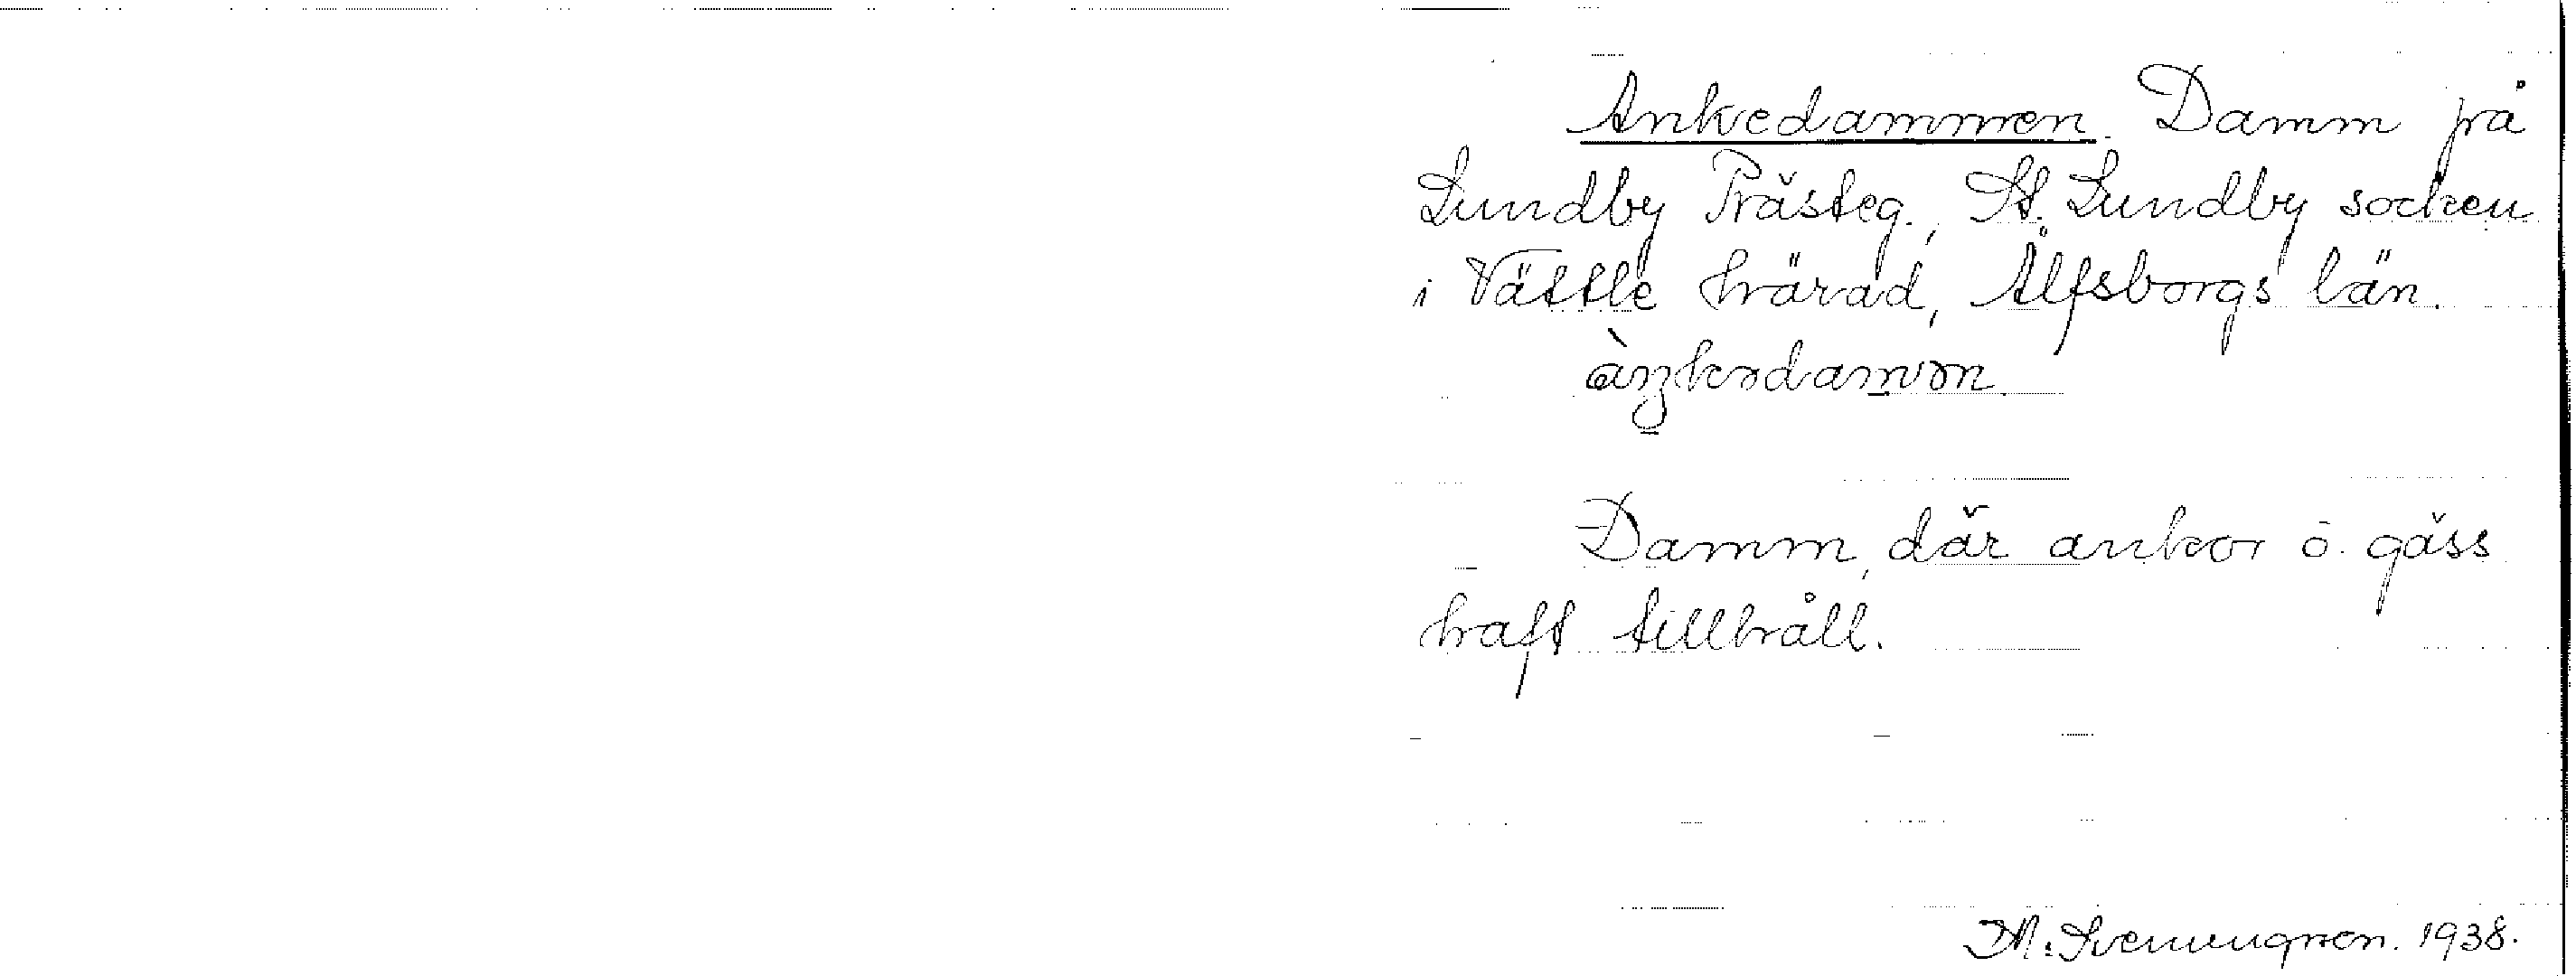 Ankedammen. Damm på
Lundby Prästeg., St. Lundby socken
i Vättle härad, Älfsborgs län.
Damm, där ankor o. gäss
haft tillhåll.
M. Svenungren. 1938.